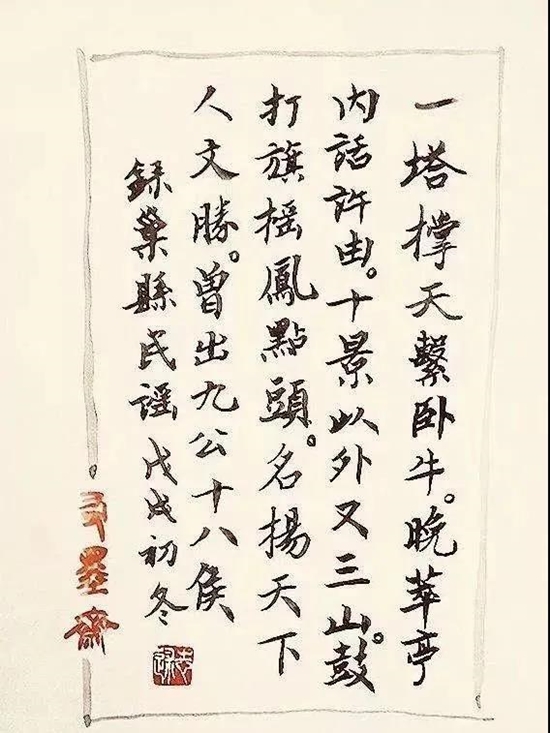 一塔撑天繫卧牛。晚萃亭
内話許由。十景以外又三山。鼓
打旗摇鳳點頭。名揚天下
人文勝。曾出九公十八侯
録巢縣民謡 戊戌初冬
墨齋